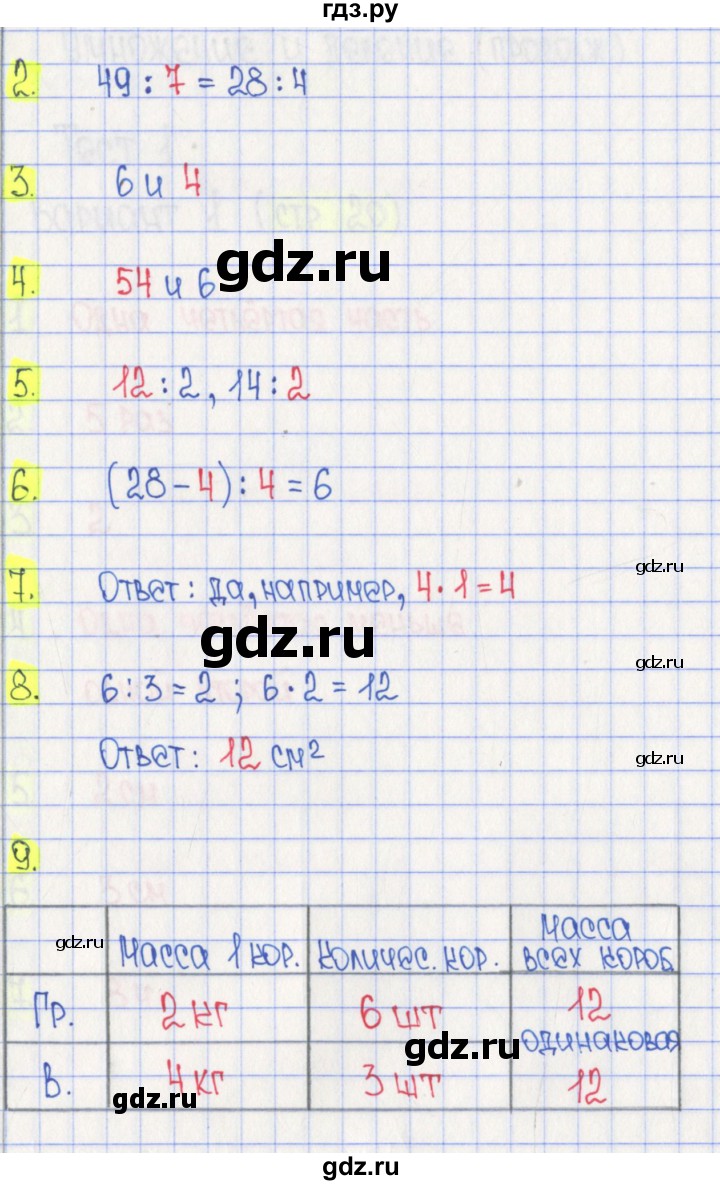 гдз.ру
2. 49 : 7 = 28 : 4
3. 6 и 4
gdz.ru
4. 54 и 6
5. 12 : 2, 14 : 2
6. (28 - 4) : 4 = 6
gdz.ru
7. Ответ: да, например, 4 · 1 = 4
gdz.ru
gdz.ru
8. 6 : 3 = 2 ; 6 · 2 = 12
Ответ: 12 см²
gdz.ru
9.
gdz.ru Масса 1 кор. Количес. кор. Масса всех короб
Гр. 2 кг 6 шт 12
одинаковая
gdz.ru
В. 4 кг 3 шт 12
gdz.ru
gdz.ru